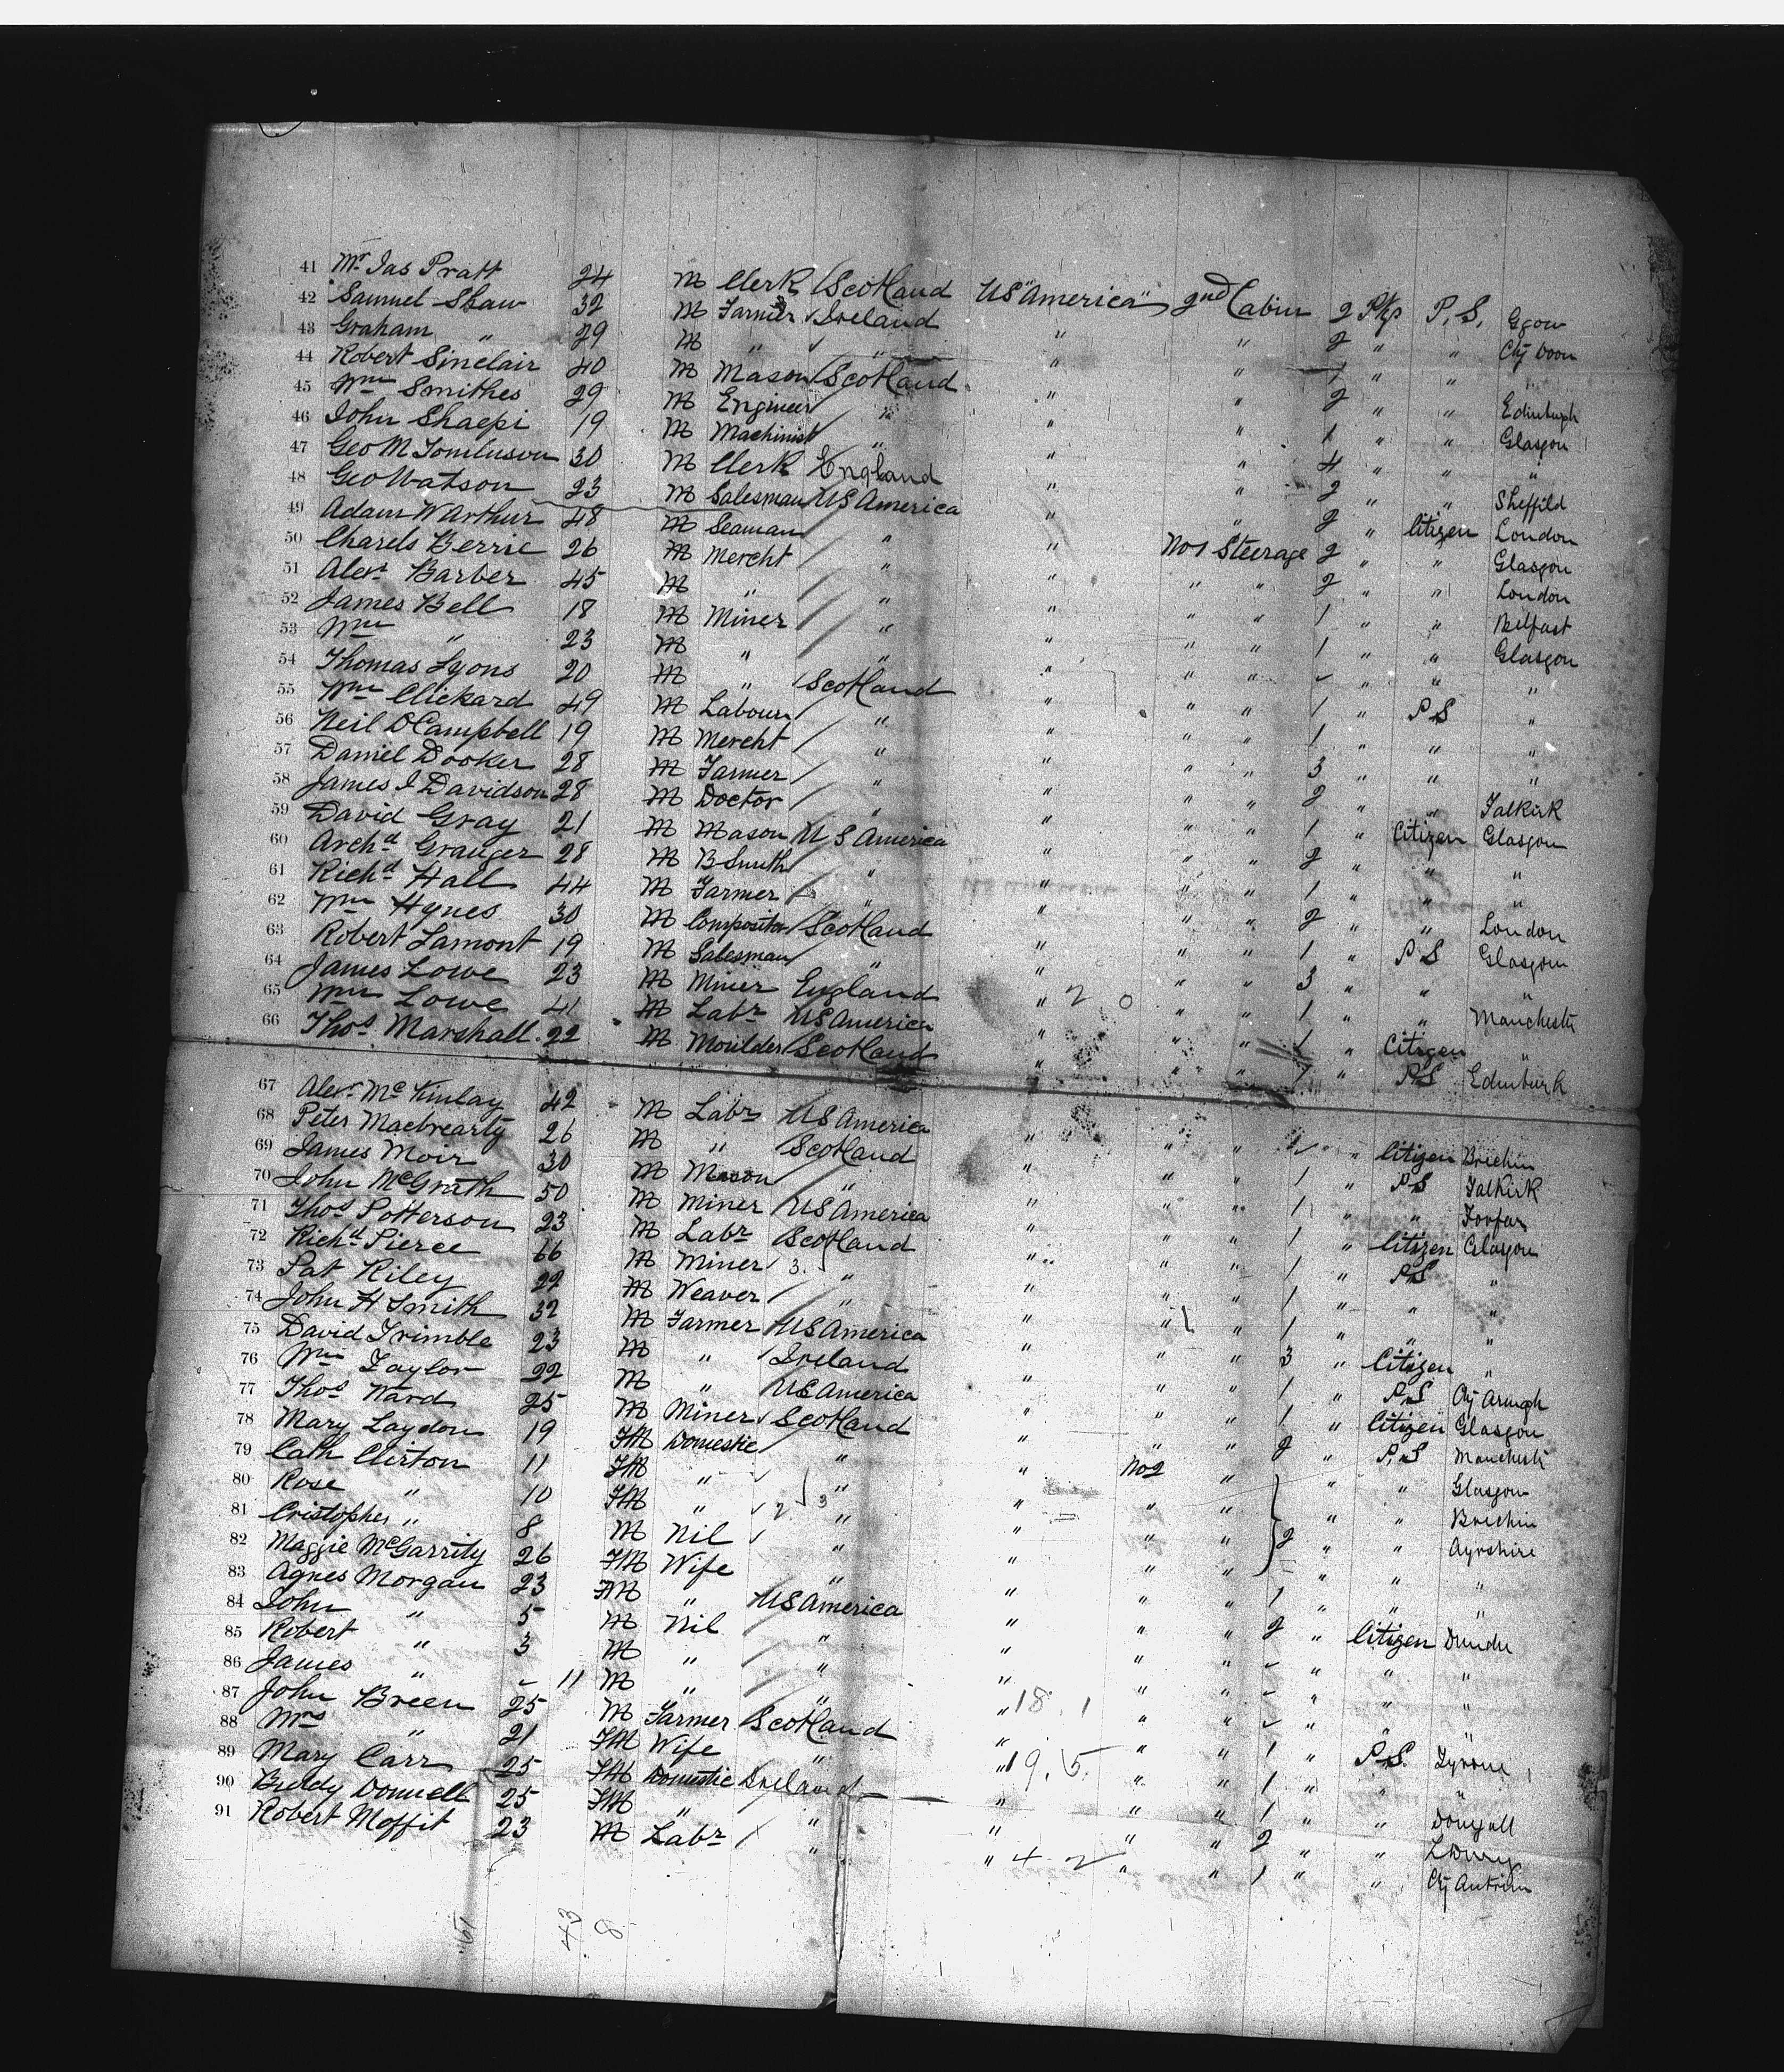 41 Mr Jas Pratt 24 M Clerk Scotland US "America" 2nd Cabin 2 Pkgs P.S. Ggow
42 Samuel Shaw 32 M Farmer Ireland " " 2 " " Cty Down
43 Graham " 29 M " " " " 1 " " "
44 Robert Sinclair 40 M Mason Scotland " " 2 " " Edinburgh
45 Wm Smithes 29 M Engineer " " " 1 " " Glasgow
46 John Shaepi 19 M Machinist " " " 4 " " "
47 Geo M Tomlinson 30 M Clerk England " " 2 " " Sheffild
48 Geo Watson 23 M Salesman US America " " 2 " Citizen London
49 Adam W Arthur 48 M Seaman " " No 1 Steerage 2 " " Glasgow
50 Charels Berrie 26 M Mercht " " " " 2 " " London
51 Alexr Barber 45 M " " " " " 1 " " Belfast
52 James Bell 18 M Miner " " " " 1 " " Glasgow
53 Wm " 23 M " " " " " " " "
54 Thomas Lyons 20 M " Scotland " " " 1 " P.S "
55 Wm Clickard 49 M Labour " " " " 1 " " "
56 Neil D Campbell 19 M Mercht " " " " 3 " " "
57 Daniel Dooker 28 M Farmer " " " " 2 " " Falkirk
58 James I Davidson 28 M Doctor " " " " 1 " Citizen Glasgow
59 David Gray 21 M Mason U S America " " " 2 " " "
60 Archd Granger 28 M B Smith " " " " 1 " " "
61 Richd Hall 44 M Farmer " " " " 2 " " London
62 Wm Hynes 30 M Compositor Scotland " " " 1 " P.S Glasgow
63 Robert Lamont 19 M Salesman " " " " 3 " " "
64 James Lowe 23 M Miner England " 2 0 " " 1 " " Manchestr
65 Wm Lowe 41 M Labr US America " " " 1 " Citizen "
66 Thos Marshall 22 M Moulder Scotland " " " 1 " P.S Edinburh
67 Alexr McKinlay 42 M Labr US America " " " " Citizen Brechin
68 Peter Macbrearty 26 M " Scotland " " " 1 " P.S Falkirk
69 James Moir 30 M Mason " " " " 1 " " Forfar
70 John McGrath 50 M Miner US America " " " 1 " Citizen Glasgow
71 Thos Potterson 23 M Labr Scotland " " " 1 " P.S "
72 Richd Pierce 66 M Miner 3. " " " " 1 " " "
73 Pat Riley 22 M Weaver " " " " 1 " " "
74 John H Smith 32 M Farmer US America " " " 3 " Citizen "
75 David Trimble 23 M " Ireland " " " 1 " P.S Cty Armagh
76 Wm Taylor 22 M " US America " " " 1 " Citizen Glasgow
77 Thos Ward 25 M Miner Scotland " " " 2 " P.S Manchestr
78 Mary Laydon 19 FM Domestic " " No 2 " " " Glasgow
79 Cath Clirton 11 FM " " " " " " " Brechin
80 Rose " 10 FM " 2 3 " " " " 2 " " Ayrshire
81 Cristopher " 8 M Nil " " " " " " "
82 Maggie McGarrity 26 FM Wife " " " " 1 " " "
83 Agnes Morgan 23 FM " US America " " " 2 " Citizen Dundee
84 John " 5 M Nil " " " " " " "
85 Robert " 3 M " " " " " " " "
86 James " - 11 M " " " 18. 1 " " " " "
87 John Breen 25 M Farmer Scotland " " " 1 " P.S. Tyrone
88 Mrs " 21 FM Wife " " 19. 5. " " 1 " " "
89 Mary Carr 25 FM Domestic Ireland " " " 1 " " Donygall
90 Briddy Donnell 25 FM " " " " " 2 " " L Derry
91 Robert Moffit 23 M Labr " " 4 2 " " 1 " " Cty Antrim
43 8